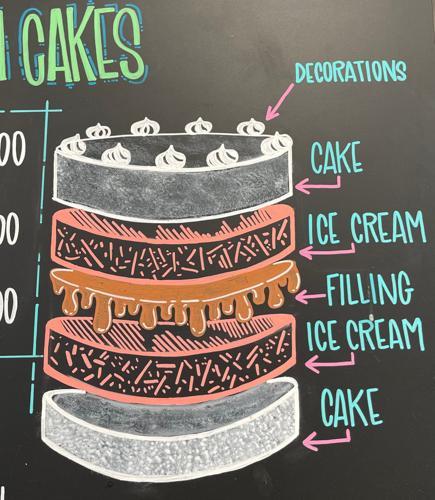 CAKES
DECORATIONS
00
CAKE
00
ICE CREAM
00
FILLING
ICE CREAM
CAKE